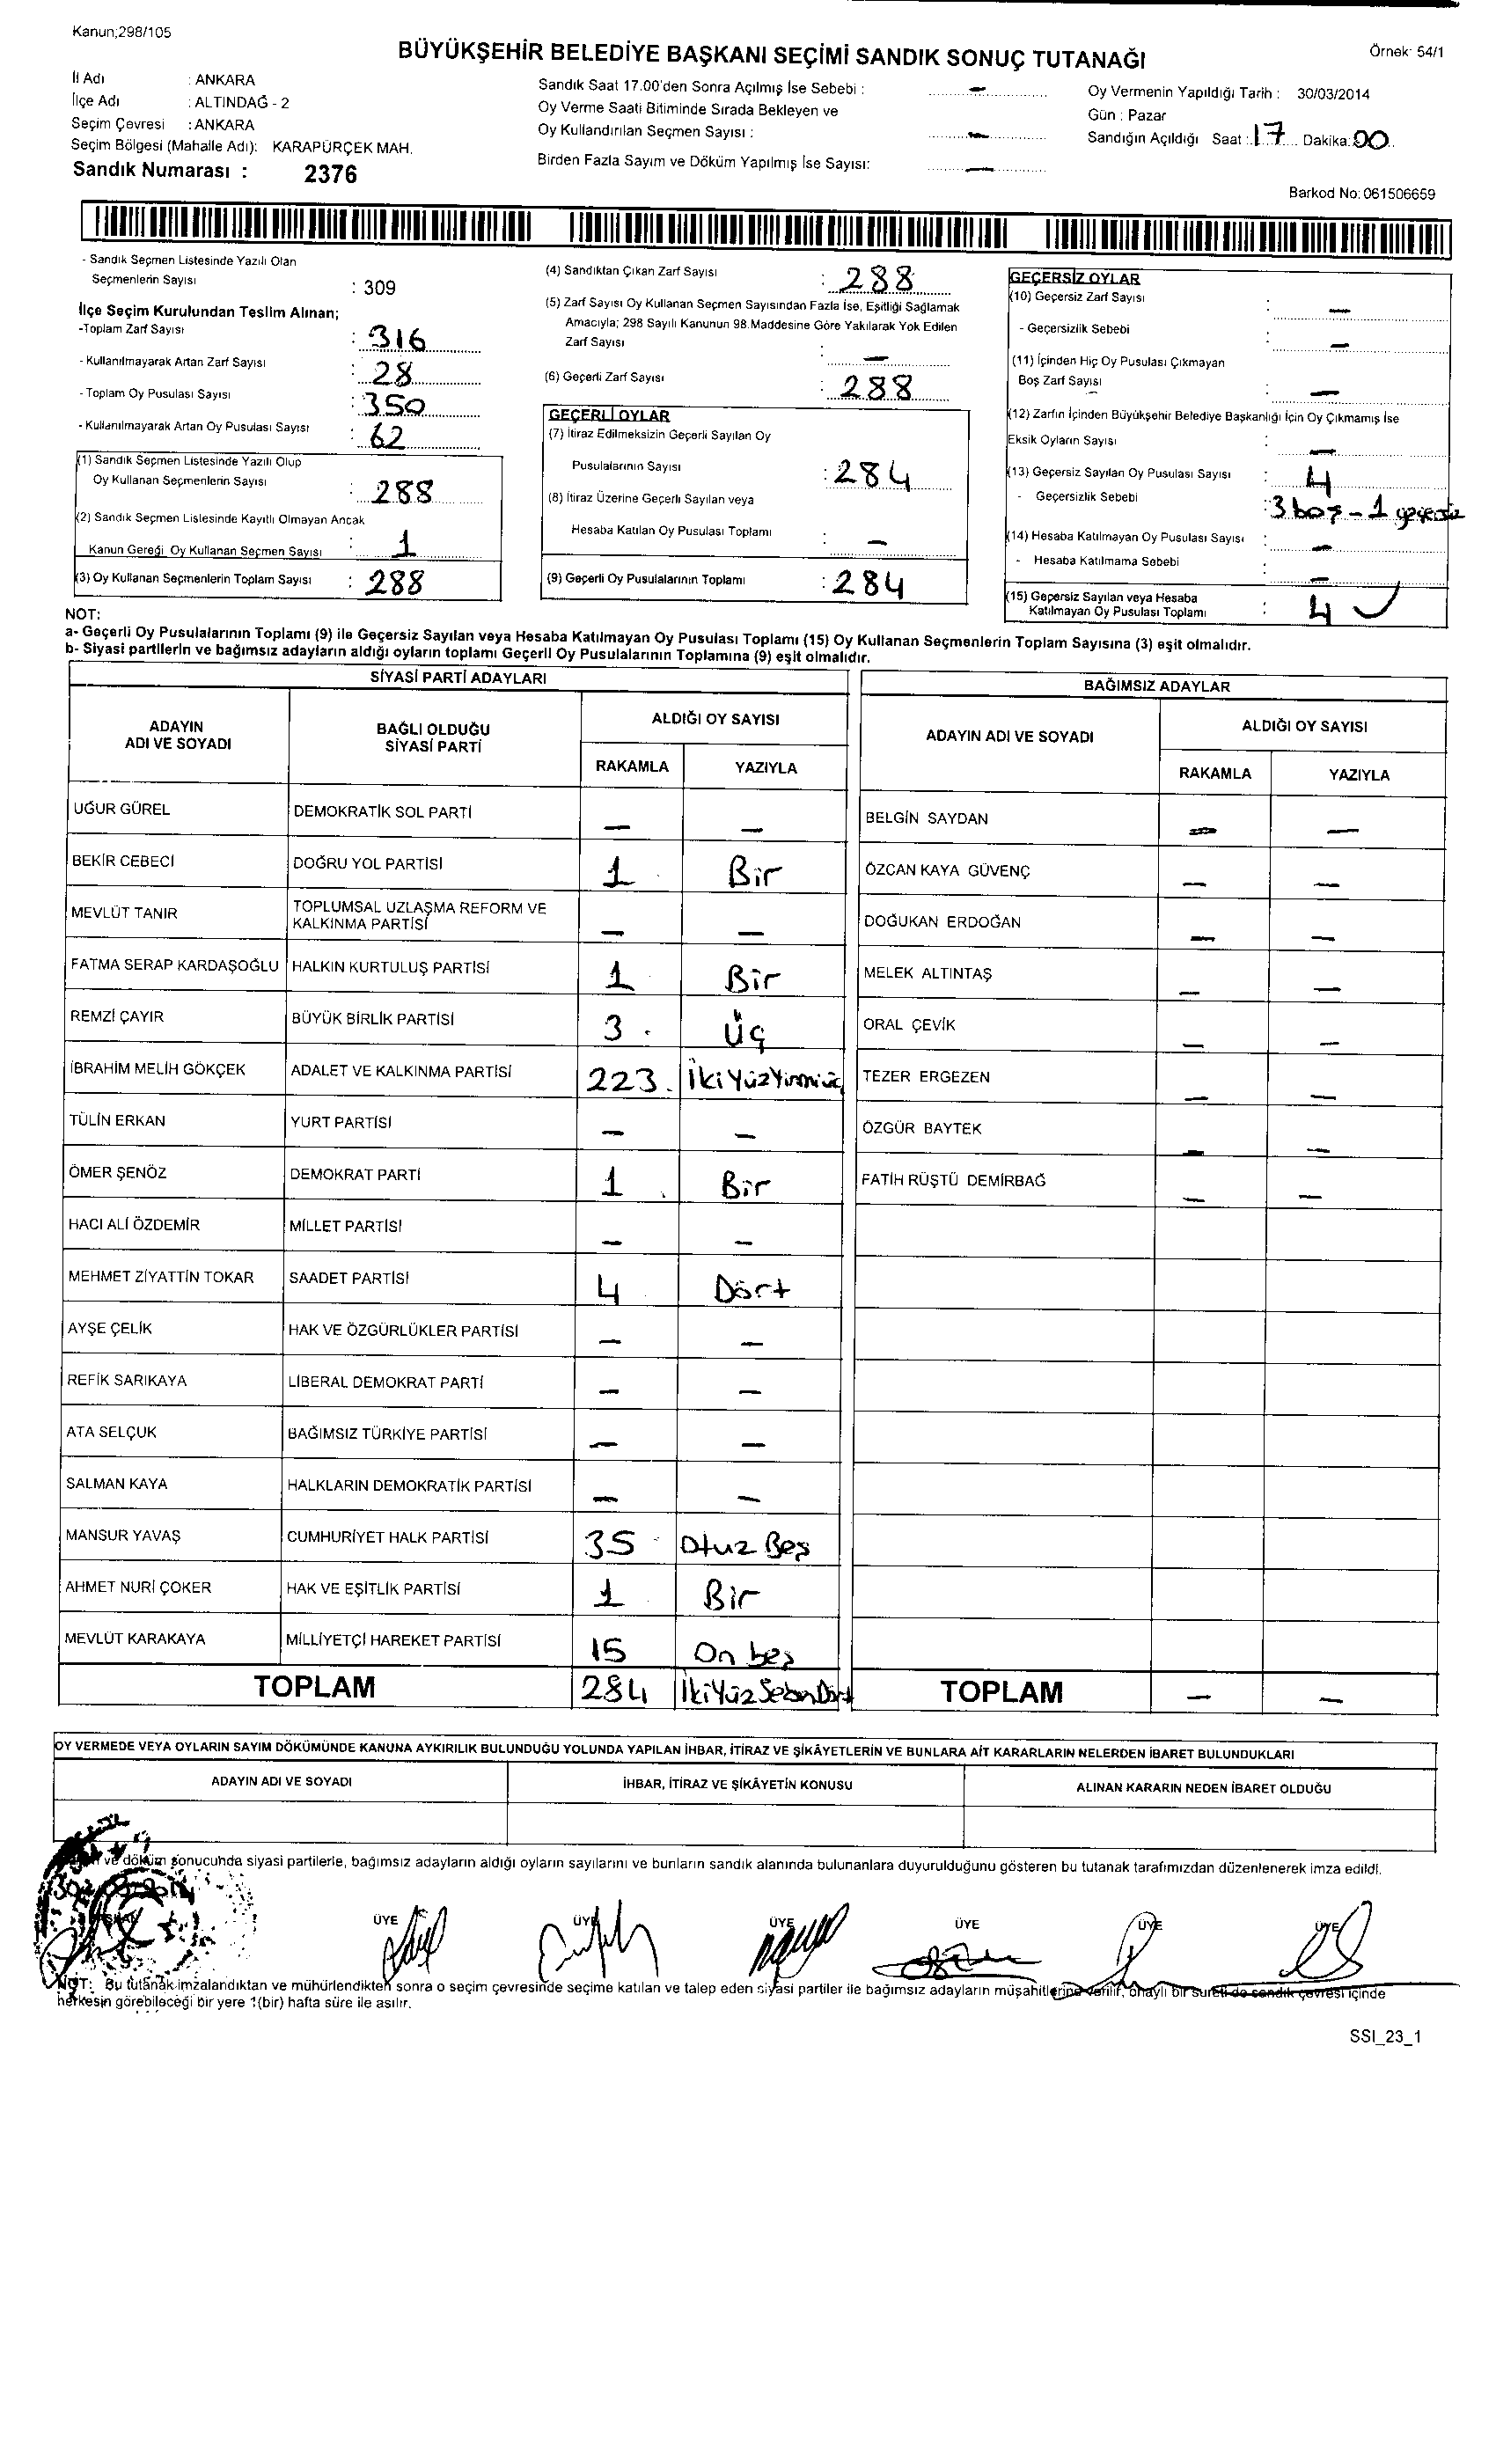 Kanun;298/105
BÜYÜKŞEHİR BELEDİYE BAŞKANI SEÇİMİ SANDIK SONUÇ TUTANAĞI
Örnek: 54/1
İl Adı : ANKARA
İlçe Adı : ALTINDAĞ - 2
Seçim Çevresi : ANKARA
Seçim Bölgesi (Mahalle Adı): KARAPÜRÇEK MAH.
Sandık Numarası : 2376
Sandık Saat 17.00'den Sonra Açılmış İse Sebebi : —
Oy Verme Saati Bitiminde Sırada Bekleyen ve
Oy Kullandırılan Seçmen Sayısı : —
Birden Fazla Sayım ve Döküm Yapılmış İse Sayısı: —
Oy Vermenin Yapıldığı Tarih : 30/03/2014
Gün : Pazar
Sandığın Açıldığı Saat : 17 Dakika: 00
Barkod No: 061506659
- Sandık Seçmen Listesinde Yazılı Olan
Seçmenlerin Sayısı : 309
İlçe Seçim Kurulundan Teslim Alınan;
-Toplam Zarf Sayısı : 316
- Kullanılmayarak Artan Zarf Sayısı : 28
- Toplam Oy Pusulası Sayısı : 350
- Kullanılmayarak Artan Oy Pusulası Sayısı : 62
(1) Sandık Seçmen Listesinde Yazılı Olup
Oy Kullanan Seçmenlerin Sayısı : 288
(2) Sandık Seçmen Listesinde Kayıtlı Olmayan Ancak
Kanun Gereği Oy Kullanan Seçmen Sayısı : 1
(3) Oy Kullanan Seçmenlerin Toplam Sayısı : 288
(4) Sandıktan Çıkan Zarf Sayısı : 288
(5) Zarf Sayısı Oy Kullanan Seçmen Sayısından Fazla İse, Eşitliği Sağlamak
Amacıyla; 298 Sayılı Kanunun 98.Maddesine Göre Yakılarak Yok Edilen
Zarf Sayısı : —
(6) Geçerli Zarf Sayısı : 288
GEÇERLİ OYLAR
(7) İtiraz Edilmeksizin Geçerli Sayılan Oy
Pusulalarının Sayısı : 284
(8) İtiraz Üzerine Geçerli Sayılan veya
Hesaba Katılan Oy Pusulası Toplamı : —
(9) Geçerli Oy Pusulalarının Toplamı : 284
GEÇERSİZ OYLAR
(10) Geçersiz Zarf Sayısı : —
- Geçersizlik Sebebi : —
(11) İçinden Hiç Oy Pusulası Çıkmayan
Boş Zarf Sayısı : —
(12) Zarfın İçinden Büyükşehir Belediye Başkanlığı İçin Oy Çıkmamış İse
Eksik Oyların Sayısı : —
(13) Geçersiz Sayılan Oy Pusulası Sayısı : 4
- Geçersizlik Sebebi : 3 boş - 1 geçersiz
(14) Hesaba Katılmayan Oy Pusulası Sayısı : —
- Hesaba Katılmama Sebebi : —
(15) Geçersiz Sayılan veya Hesaba
Katılmayan Oy Pusulası Toplamı : 4
NOT:
a- Geçerli Oy Pusulalarının Toplamı (9) ile Geçersiz Sayılan veya Hesaba Katılmayan Oy Pusulası Toplamı (15) Oy Kullanan Seçmenlerin Toplam Sayısına (3) eşit olmalıdır.
b- Siyasi partilerin ve bağımsız adayların aldığı oyların toplamı Geçerli Oy Pusulalarının Toplamına (9) eşit olmalıdır.
SİYASİ PARTİ ADAYLARI
ADAYIN ADI VE SOYADI
BAĞLI OLDUĞU SİYASİ PARTİ
ALDIĞI OY SAYISI
RAKAMLA YAZIYLA
UĞUR GÜREL DEMOKRATİK SOL PARTİ — —
BEKİR CEBECİ DOĞRU YOL PARTİSİ 1 Bir
MEVLÜT TANIR TOPLUMSAL UZLAŞMA REFORM VE KALKINMA PARTİSİ — —
FATMA SERAP KARDAŞOĞLU HALKIN KURTULUŞ PARTİSİ 1 Bir
REMZİ ÇAYIR BÜYÜK BİRLİK PARTİSİ 3 Üç
İBRAHİM MELİH GÖKÇEK ADALET VE KALKINMA PARTİSİ 223 İkiYüzYirmiüç
TÜLİN ERKAN YURT PARTİSİ — —
ÖMER ŞENÖZ DEMOKRAT PARTİ 1 Bir
HACI ALİ ÖZDEMİR MİLLET PARTİSİ — —
MEHMET ZİYATTİN TOKAR SAADET PARTİSİ 4 Dört
AYŞE ÇELİK HAK VE ÖZGÜRLÜKLER PARTİSİ — —
REFİK SARIKAYA LİBERAL DEMOKRAT PARTİ — —
ATA SELÇUK BAĞIMSIZ TÜRKİYE PARTİSİ — —
SALMAN KAYA HALKLARIN DEMOKRATİK PARTİSİ — —
MANSUR YAVAŞ CUMHURİYET HALK PARTİSİ 35 Otuz Beş
AHMET NURİ ÇOKER HAK VE EŞİTLİK PARTİSİ 1 Bir
MEVLÜT KARAKAYA MİLLİYETÇİ HAREKET PARTİSİ 15 On beş
TOPLAM 284 İkiYüzSeksenDört
BAĞIMSIZ ADAYLAR
ADAYIN ADI VE SOYADI
ALDIĞI OY SAYISI
RAKAMLA YAZIYLA
BELGİN SAYDAN — —
ÖZCAN KAYA GÜVENÇ — —
DOĞUKAN ERDOĞAN — —
MELEK ALTINTAŞ — —
ORAL ÇEVİK — —
TEZER ERGEZEN — —
ÖZGÜR BAYTEK — —
FATİH RÜŞTÜ DEMİRBAĞ — —
TOPLAM — —
OY VERMEDE VEYA OYLARIN SAYIM DÖKÜMÜNDE KANUNA AYKIRILIK BULUNDUĞU YOLUNDA YAPILAN İHBAR, İTİRAZ VE ŞİKÂYETLERİN VE BUNLARA AİT KARARLARIN NELERDEN İBARET BULUNDUKLARI
ADAYIN ADI VE SOYADI İHBAR, İTİRAZ VE ŞİKÂYETİN KONUSU ALINAN KARARIN NEDEN İBARET OLDUĞU
ve döküm sonucunda siyasi partilerle, bağımsız adayların aldığı oyların sayılarını ve bunların sandık alanında bulunanlara duyurulduğunu gösteren bu tutanak tarafımızdan düzenlenerek imza edildi.
ÜYE ÜYE ÜYE ÜYE ÜYE ÜYE
NOT: Bu tutanak imzalandıktan ve mühürlendikten sonra o seçim çevresinde seçime katılan ve talep eden siyasi partiler ile bağımsız adayların müşahitlerine verilir, onaylı bir sureti de sandık çevresi içinde
herkesin görebileceği bir yere 1(bir) hafta süre ile asılır.
SSI_23_1